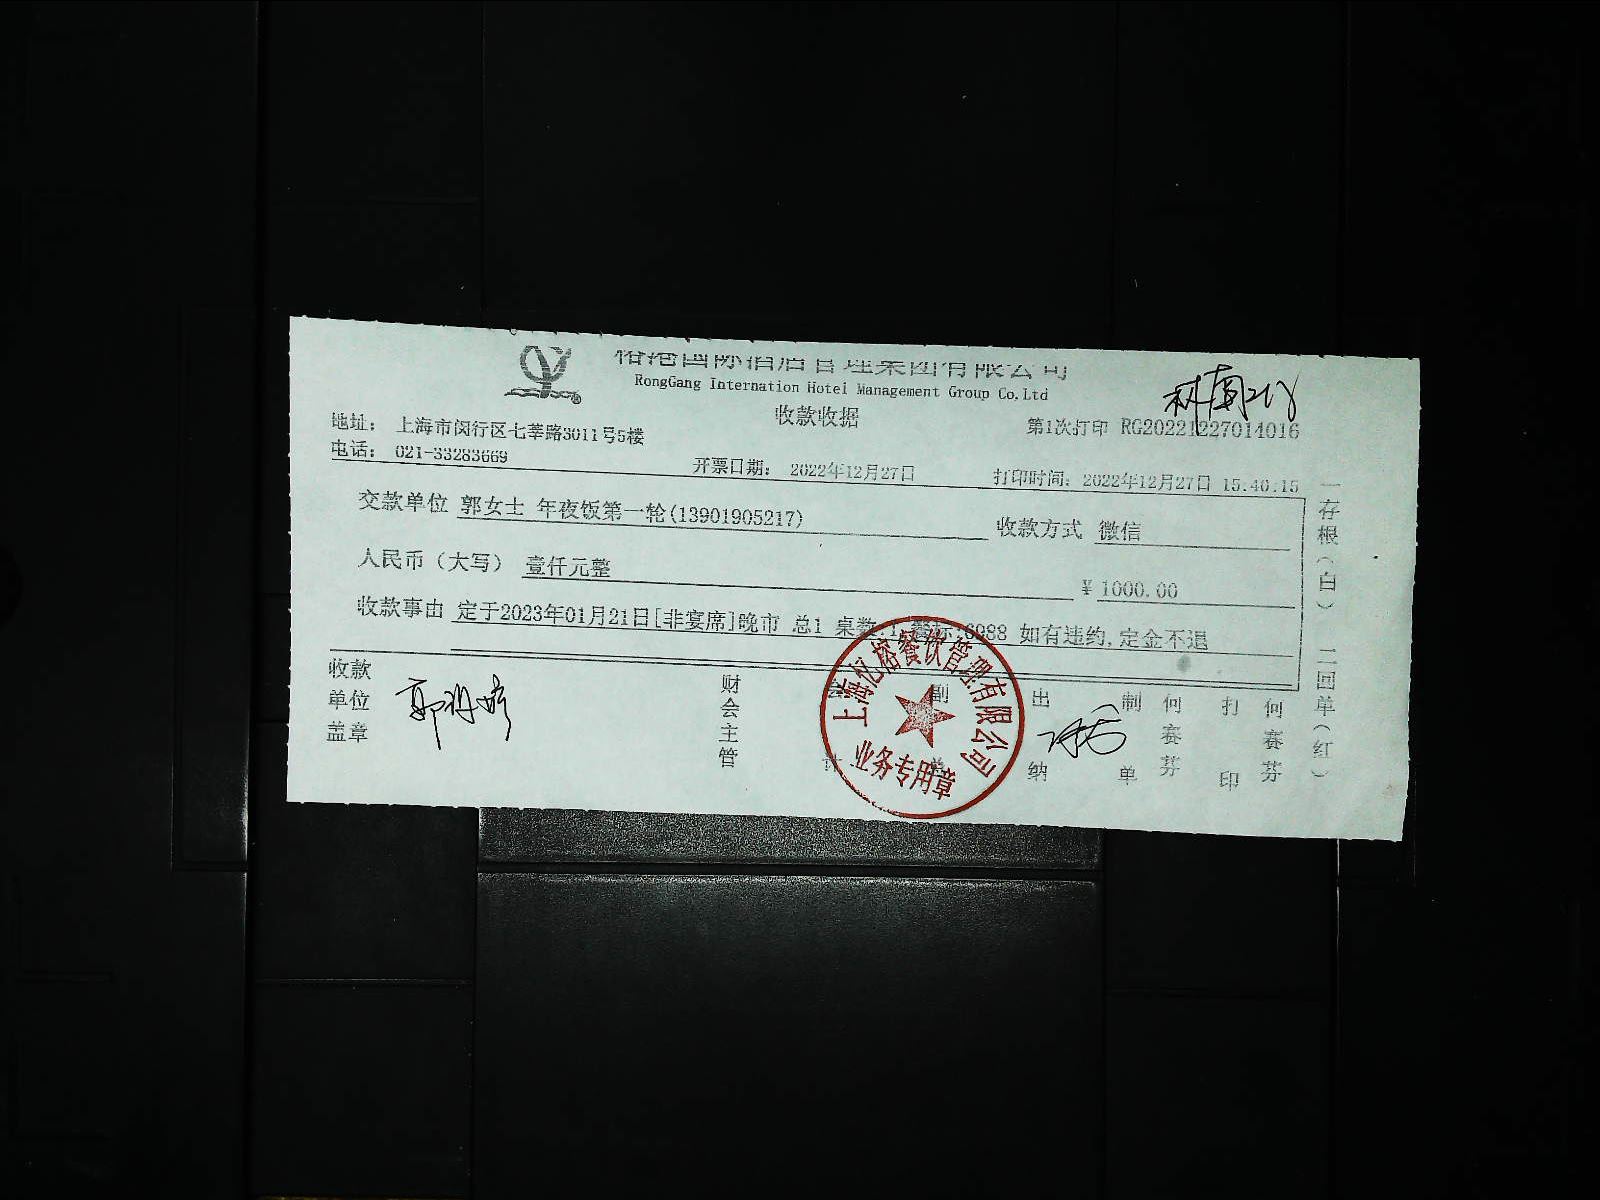 榕港国际酒店管理集团有限公司
RongGang Internation Hotel Management Group Co.Ltd
收款收据
地址： 上海市闵行区七莘路3011号5楼
第1次打印 RG20221227014016
电话： 021-33283669
开票日期： 2022年12月27日
打印时间：2022年12月27日 15:40:15
交款单位 郭女士 年夜饭第一轮(13901905217)
收款方式 微信
人民币（大写） 壹仟元整
￥1000.00
收款事由 定于2023年01月21日[非宴席]晚市 总1 桌数:1 餐标:6988 如有违约,定金不退
收款单位盖章
财会主管
会计
副单
出纳
制单 何赛芬
打印 何赛芬
一存根（白） 二回单（红）
上海亿榕餐饮管理有限公司
业务专用章